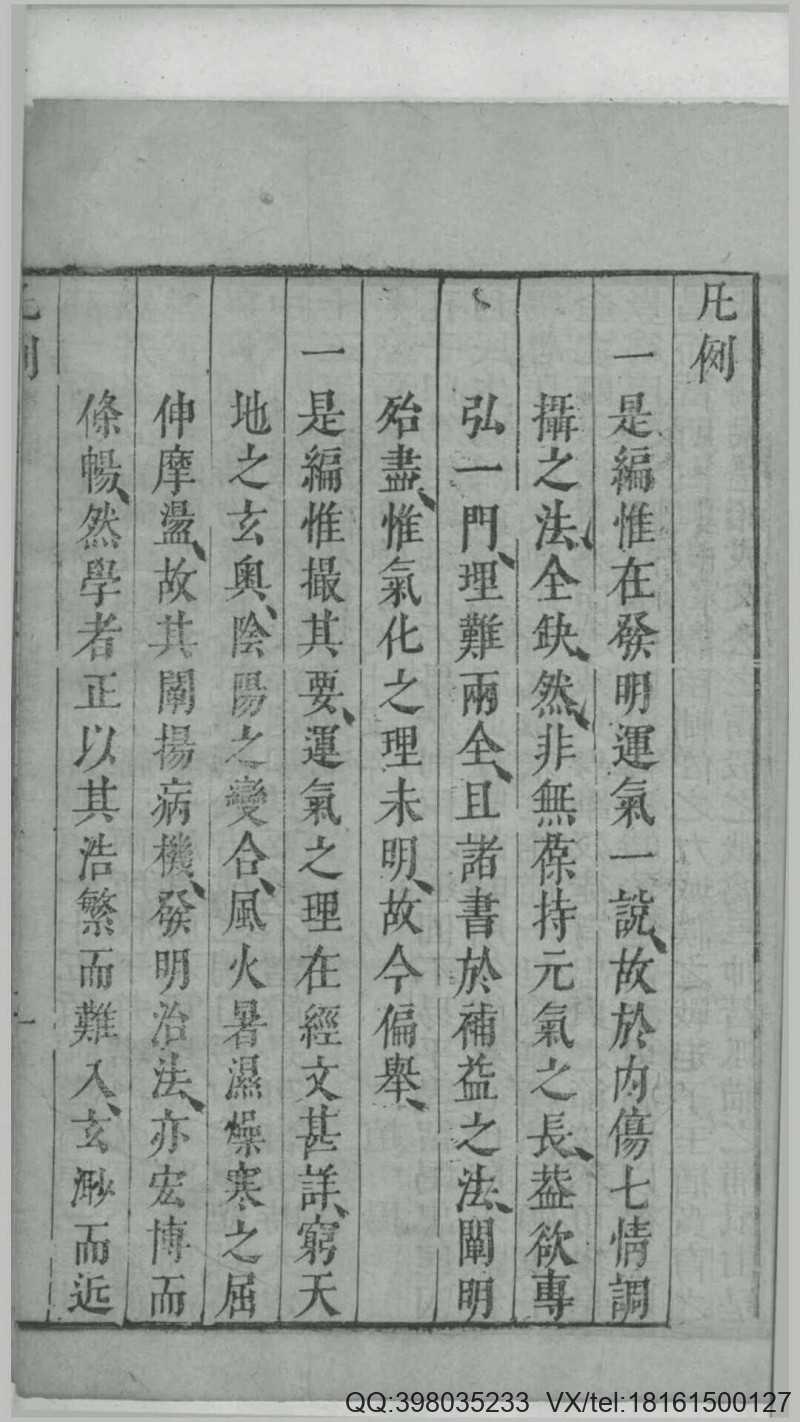 凡例
一是編惟在發明運氣一說、故於内傷七情調
攝之法、全缺、然、非無葆持元氣之長、葢欲專
弘一門、理難兩全、且諸書於補益之法、闡明
殆盡、惟氣化之理未明、故今偏舉、
一是編惟撮其要、運氣之理在經文甚詳、窮天
地之玄奥、陰陽之變合、風火暑濕燥寒之屈
伸摩盪、故其闡揚病機、發明治法、亦宏博而
條暢、然學者正以其浩繁而難入、玄渺而近
凡例
一
QQ:398035233 VX/tel:18161500127